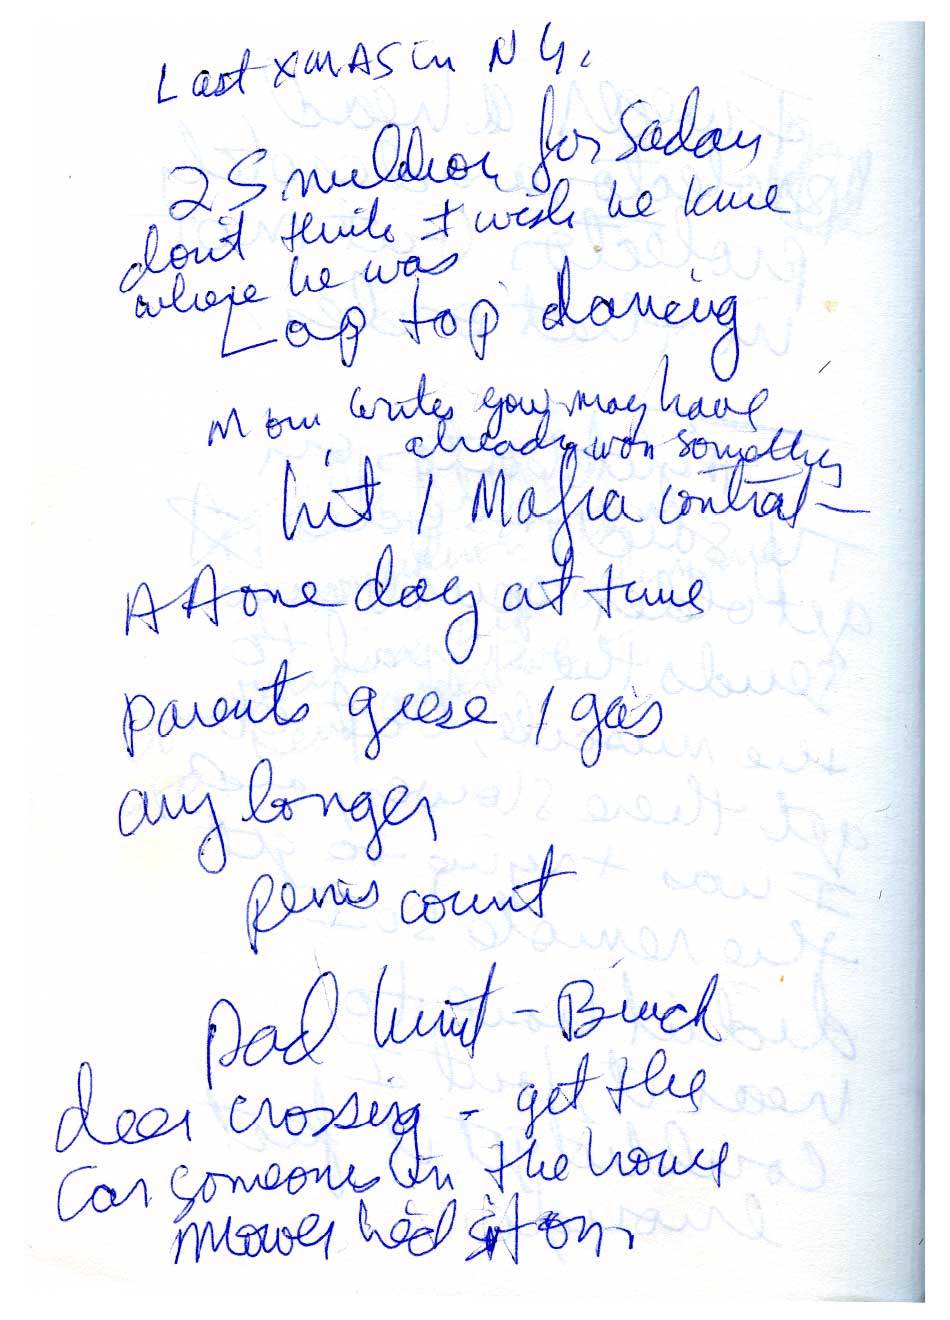 Last XMAS in N Y.
25 million for Sadam
don't think I wish he knew
where he was
Lap top dancing
Mom writes you may have
already won something
hit / Mafia contrat
AA one day at time
parents geese / gas
any longer
penis count
Dad hunt -
deer crossing - get the
Car someone in the house
mower he'd sit on